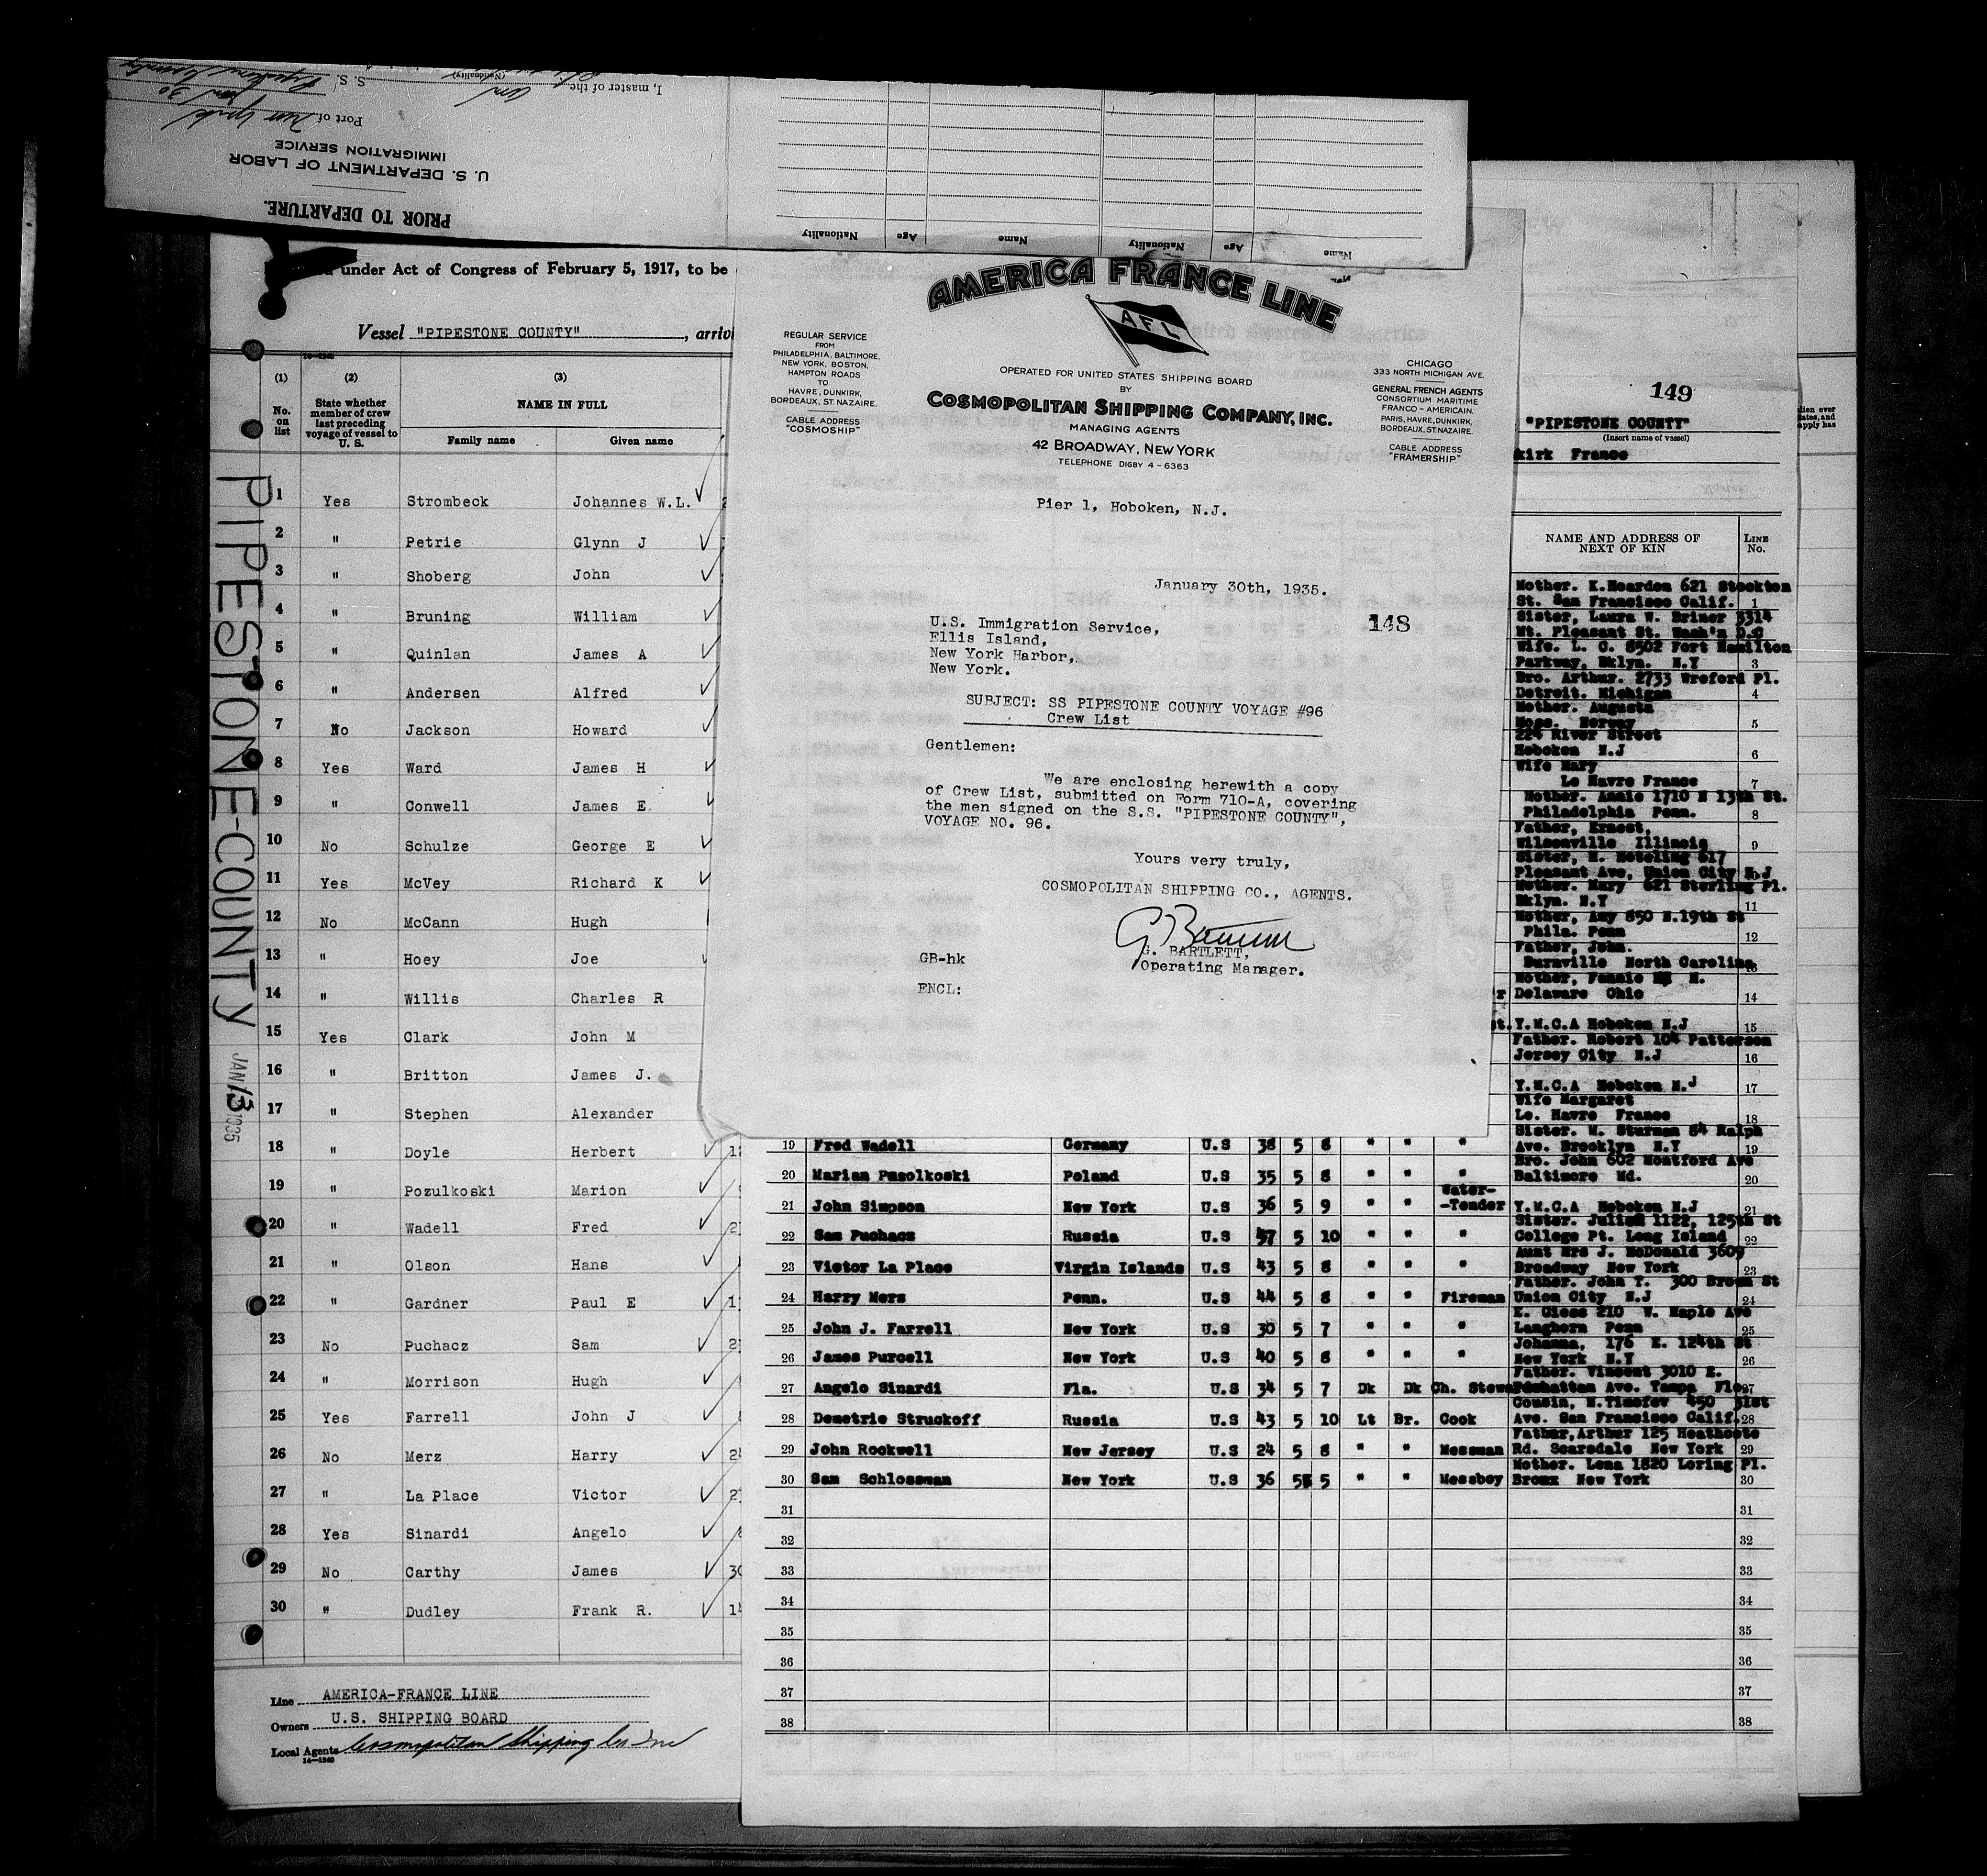 PRIOR TO DEPARTURE.
U. S. DEPARTMENT OF LABOR
IMMIGRATION SERVICE
Port of New York
I, master of the
(Nationality)
S. S.
Name Age Nationality Name Age Nationality
under Act of Congress of February 5, 1917, to be
Vessel "PIPESTONE COUNTY", arrivi
(1) (2) (3)
No. on list
State whether member of crew last preceding voyage of vessel to U. S.
NAME IN FULL
Family name Given name
1 Yes Strombeck Johannes W.L.
2 " Petrie Glynn J
3 " Shoberg John
4 " Bruning William
5 " Quinlan James A
6 " Andersen Alfred
7 No Jackson Howard
8 Yes Ward James H
9 " Conwell James E
10 No Schulze George E
11 Yes McVey Richard K
12 No McCann Hugh
13 " Hoey Joe
14 " Willis Charles R
15 Yes Clark John M
16 " Britton James J.
17 " Stephen Alexander
18 " Doyle Herbert
19 " Pozulkoski Marion
20 " Wadell Fred
21 " Olson Hans
22 " Gardner Paul E
23 No Puchacz Sam
24 " Morrison Hugh
25 Yes Farrell John J
26 No Merz Harry
27 " La Place Victor
28 Yes Sinardi Angelo
29 No Carthy James
30 " Dudley Frank R.
PIPESTONE-COUNTY
JAN 13 1935
Line AMERICA-FRANCE LINE
Owners U.S. SHIPPING BOARD
Local Agents Cosmopolitan Shipping Co Inc
14-1240
AMERICA FRANCE LINE
AFL
REGULAR SERVICE
FROM
PHILADELPHIA, BALTIMORE,
NEW YORK, BOSTON,
HAMPTON ROADS
TO
HAVRE, DUNKIRK,
BORDEAUX, ST. NAZAIRE.
CABLE ADDRESS
"COSMOSHIP"
OPERATED FOR UNITED STATES SHIPPING BOARD
BY
COSMOPOLITAN SHIPPING COMPANY, INC.
MANAGING AGENTS
42 BROADWAY, NEW YORK
TELEPHONE DIGBY 4-6363
CHICAGO
333 NORTH MICHIGAN AVE.
GENERAL FRENCH AGENTS
CONSORTIUM MARITIME
FRANCO-AMERICAIN.
PARIS, HAVRE, DUNKIRK,
BORDEAUX, ST. NAZAIRE.
CABLE ADDRESS
"FRAMERSHIP"
Pier 1, Hoboken, N.J.
January 30th, 1935.
148
U.S. Immigration Service,
Ellis Island,
New York Harbor,
New York.
SUBJECT: SS PIPESTONE COUNTY VOYAGE #96
Crew List
Gentlemen:
We are enclosing herewith a copy
of Crew List, submitted on Form 710-A, covering
the men signed on the S.S. "PIPESTONE COUNTY",
VOYAGE NO. 96.
Yours very truly,
COSMOPOLITAN SHIPPING CO., AGENTS.
G. BARTLETT,
Operating Manager.
GB-hk
ENCL:
149
"PIPESTONE COUNTY"
(Insert name of vessel)
kirk France
NAME AND ADDRESS OF NEXT OF KIN
LINE No.
Mother. K.Hearden 621 Stockton
St. San Francisco Calif. 1
Sister, Laura W. Briner 3314
Mt. Pleasant St. Wash'n D.C
Wife. L. C. 8502 Fort Hamilton
Parkway, Bklyn. N.Y 3
Bro. Arthur. 2733 Wreford Pl.
Detroit. Michigan 4
Mother. Augusta
Moss. Norway 5
224 River Street
Hoboken N.J 6
Wife Mary
Le Havre France 7
Mother. Annie 1710 N 13th St.
Philadelphia Penn. 8
Father, Ernest,
Wilsonville Illinois 9
Sister, M. Hoteling 617
Pleasant Ave, Union City N.J
Mother. Mary 621 Sterling Pl.
Bklyn. N.Y 11
Mother, Amy 850 N.19th St
Phila. Penn 12
Father, John.
Burnville North Carolina
Mother, Fannie N.
Delaware Ohio 14
Y.M.C.A Hoboken N.J 15
Father. Robert 104 Patterson
Jersey City N.J 16
Y.M.C.A Hoboken N.J 17
Wife Margaret
Le. Havre France 18
Sister. M. Sturman 84 Ralph
19 Fred Wadell Germany U.S 38 5 8 " " " Ave. Brooklyn N.Y 19
Bro. John 602 Montford Ave
20 Marian Pusolkoski Poland U.S 35 5 8 " " " Baltimore Md. 20
21 John Simpson New York U.S 36 5 9 " " Water-Tender Y.M.C.A Hoboken N.J 21
Sister. Julia 1122, 125th St
22 Sam Puchacs Russia U.S 37 5 10 " " " College Pt. Long Island 22
Aunt Mrs J. McDonald 3609
23 Victor La Place Virgin Islands U.S 43 5 8 " " " Broadway New York 23
Father. John T. 300 Brown St
24 Harry Merz Penn. U.S 44 5 8 " " Fireman Union City N.J 24
K. Gless 210 W. Maple Ave
25 John J. Farrell New York U.S 30 5 7 " " " Langhorn Penn 25
Johanna, 176 E. 124th St
26 James Purcell New York U.S 40 5 8 " " " New York N.Y 26
Father. Vincent 3010 E.
27 Angelo Sinardi Fla. U.S 34 5 7 Dk Dk Ch. Stew Manhattan Ave. Tampa Flo 27
Cousin, N.Timofev 450 31st
28 Demetrie Struckoff Russia U.S 43 5 10 Lt Br. Cook Ave. San Francisco Calif. 28
Father,Arthur 125 Heathcote
29 John Rockwell New Jersey U.S 24 5 8 " " Messman Rd. Scarsdale New York 29
Mother. Lena 1820 Loring Pl.
30 Sam Schlossman New York U.S 36 5 5 " " Messboy Bronx New York 30
31 31
32 32
33 33
34 34
35 35
36 36
37 37
38 38